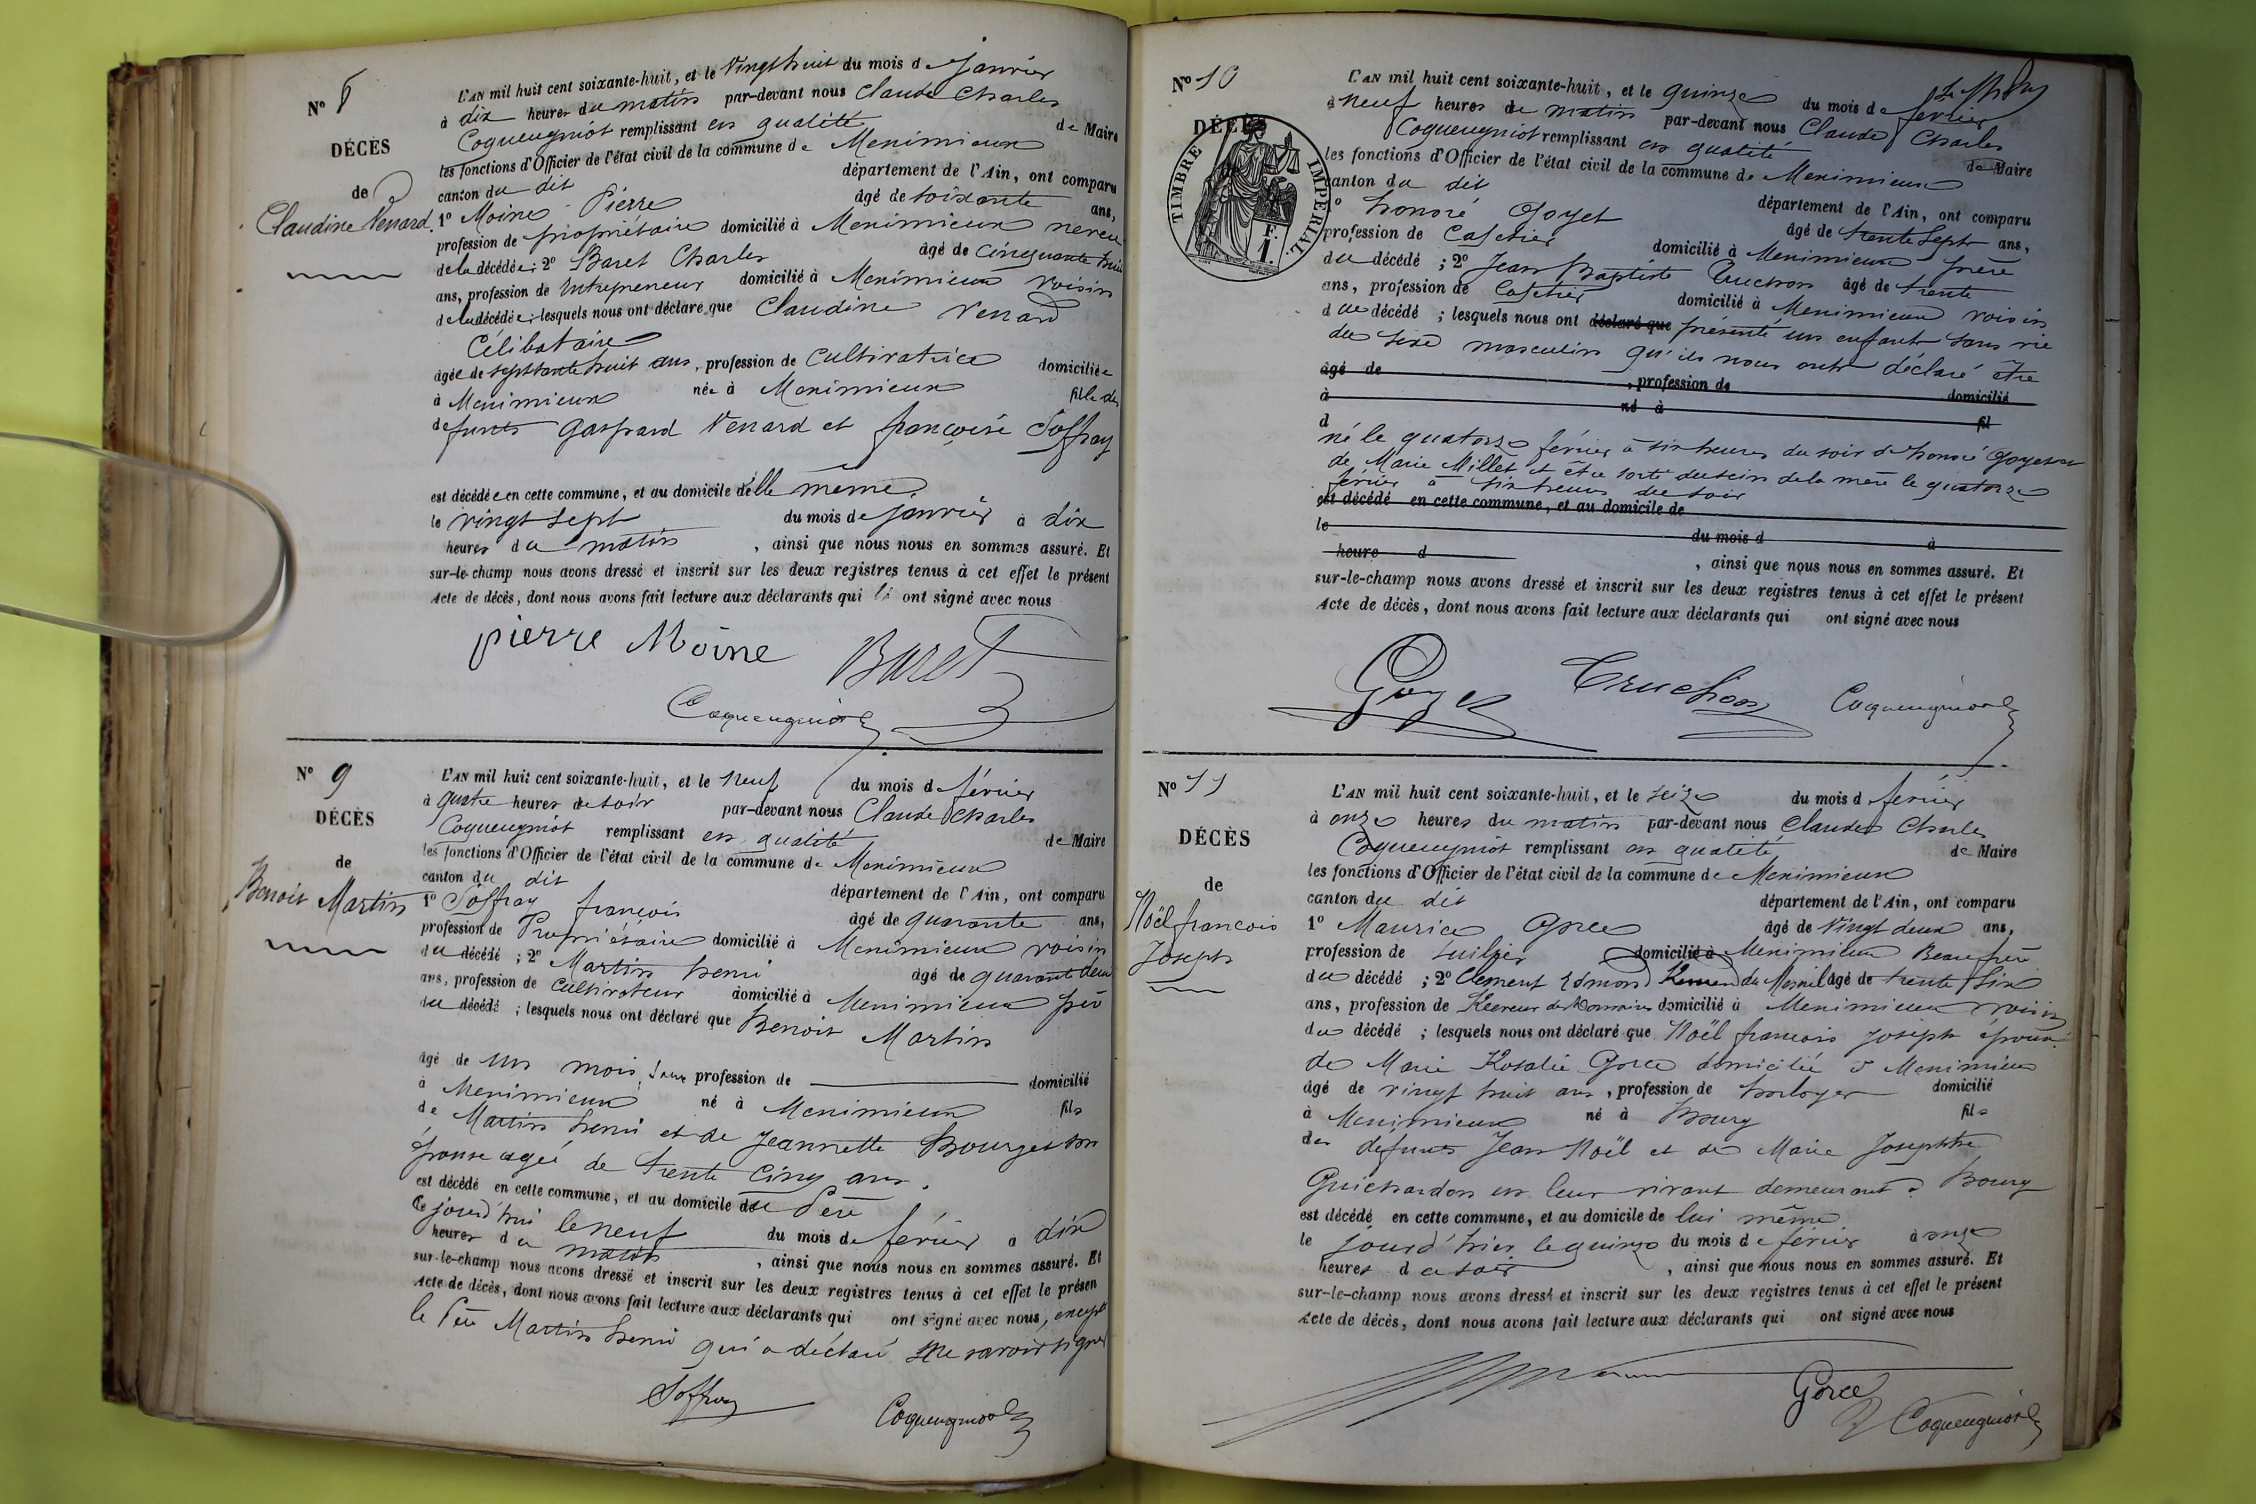 N° 8
DÉCÈS
de
Claudine Venard
L'AN mil huit cent soixante-huit, et le Vingt huit du mois de janvier
à dix heures du matin par-devant nous Claude Charles
Coqueugniot remplissant en qualité de Maire
les fonctions d'Officier de l'état civil de la commune de Meximieux
canton du dit département de l'Ain, ont comparu
1° Moine Pierre âgé de soixante ans,
profession de propriétaire domicilié à Meximieux neveu
de la décédée ; 2° Baret Charles âgé de cinquante huit
ans, profession de Entrepreneur domicilié à Meximieux voisin
de la décédée ; lesquels nous ont déclaré que Claudine Venard
Célibataire
âgée de septtante huit ans, profession de Cultivatrice domiciliée
à Meximieux née à Meximieux fille des
defunts Gaspard Venard et françoise Soffray
est décédée en cette commune, et au domicile d'elle même
le vingt sept du mois de janvier à dix
heures du matin, ainsi que nous nous en sommes assuré. Et
sur-le-champ nous avons dressé et inscrit sur les deux registres tenus à cet effet le présent
Acte de décès, dont nous avons fait lecture aux déclarants qui ont signé avec nous
pierre Moine Baret
Coqueugniot
N° 9
DÉCÈS
de
Benoit Martin
L'AN mil huit cent soixante-huit, et le neuf du mois de février
à quatre heures du soir par-devant nous Claude Charles
Coqueugniot remplissant en qualité de Maire
les fonctions d'Officier de l'état civil de la commune de Meximieux
canton du dit département de l'Ain, ont comparu
1° Soffray françois âgé de quarante ans,
profession de Propriétaire domicilié à Meximieux voisin
du décédé ; 2° Martin henri âgé de quarante deux
ans, profession de Cultivateur domicilié à Meximieux père
du décédé ; lesquels nous ont déclaré que Benoit Martin
âgé de un mois, sans profession de domicilié
à Meximieux né à Meximieux fils
de Martin henri et de Jeannette Bourget son
épouse agée de trente cinq ans.
est décédé en cette commune, et au domicile du Père
ce jourd'hui le neuf du mois de février à dix
heures du matin, ainsi que nous nous en sommes assuré. Et
sur-le-champ nous avons dressé et inscrit sur les deux registres tenus à cet effet le présen
Acte de décès, dont nous avons fait lecture aux déclarants qui ont signé avec nous, excepté
le Père Martin henri qui a déclaré ne savoir signer
Soffray
Coqueugniot
N° 10
DÉCÈS
TIMBRE IMPÉRIAL
F. 1.
L'AN mil huit cent soixante-huit, et le quinze du mois de février
à neuf heures de matin par-devant nous Claude Charles
Coqueugniot remplissant en qualité de Maire
les fonctions d'Officier de l'état civil de la commune de Meximieux
canton du dit département de l'Ain, ont comparu
1° honoré Goyet âgé de trente sept ans,
profession de Cafetier domicilié à Meximieux père
du décédé ; 2° Jean Baptiste Truchon âgé de trente
ans, profession de Cafetier domicilié à Meximieux voisin
du décédé ; lesquels nous ont déclaré que présenté un enfant sans vie
du sexe masculin qu'ils nous ont déclaré être
âgé de , profession de domicilié
à né à fil
d
né le quatorze février à six heures du soir d'honoré Goyet et
de Marie Millet et être sorti du sein de la mère le quatorze
février à six heures du soir
est décédé en cette commune, et au domicile de
le du mois d à
heure d , ainsi que nous nous en sommes assuré. Et
sur-le-champ nous avons dressé et inscrit sur les deux registres tenus à cet effet le présent
Acte de décès, dont nous avons fait lecture aux déclarants qui ont signé avec nous
Goyet Truchon Coqueugniot
N° 11
DÉCÈS
de
Noël francois
Joseph
L'AN mil huit cent soixante-huit, et le seize du mois de février
à onze heures du matin par-devant nous Claude Charles
Coqueugniot remplissant en qualité de Maire
les fonctions d'Officier de l'état civil de la commune de Meximieux
canton du dit département de l'Ain, ont comparu
1° Maurice Gorce âgé de Vingt deux ans,
profession de huilier domicilié à Meximieux Beau frère
du décédé ; 2° Clement Edmond du Mesnil âgé de trente six
ans, profession de Receveur des Domaines domicilié à Meximieux voisin
du décédé ; lesquels nous ont déclaré que Noël francois Joseph époux
de Marie Rosalie Gorce domicilié à Meximieux
âgé de vingt huit ans, profession de horloger domicilié
à Meximieux né à Bourg fils
des defunts Jean Noël et de Marie Josephthe
Guichardon en leur vivant demeurant à Bourg
est décédé en cette commune, et au domicile de lui même
le jourd'hier le quinze du mois de février à onze
heures du soir, ainsi que nous nous en sommes assuré. Et
sur-le-champ nous avons dressé et inscrit sur les deux registres tenus à cet effet le présent
Acte de décès, dont nous avons fait lecture aux déclarants qui ont signé avec nous
Gorce
Coqueugniot